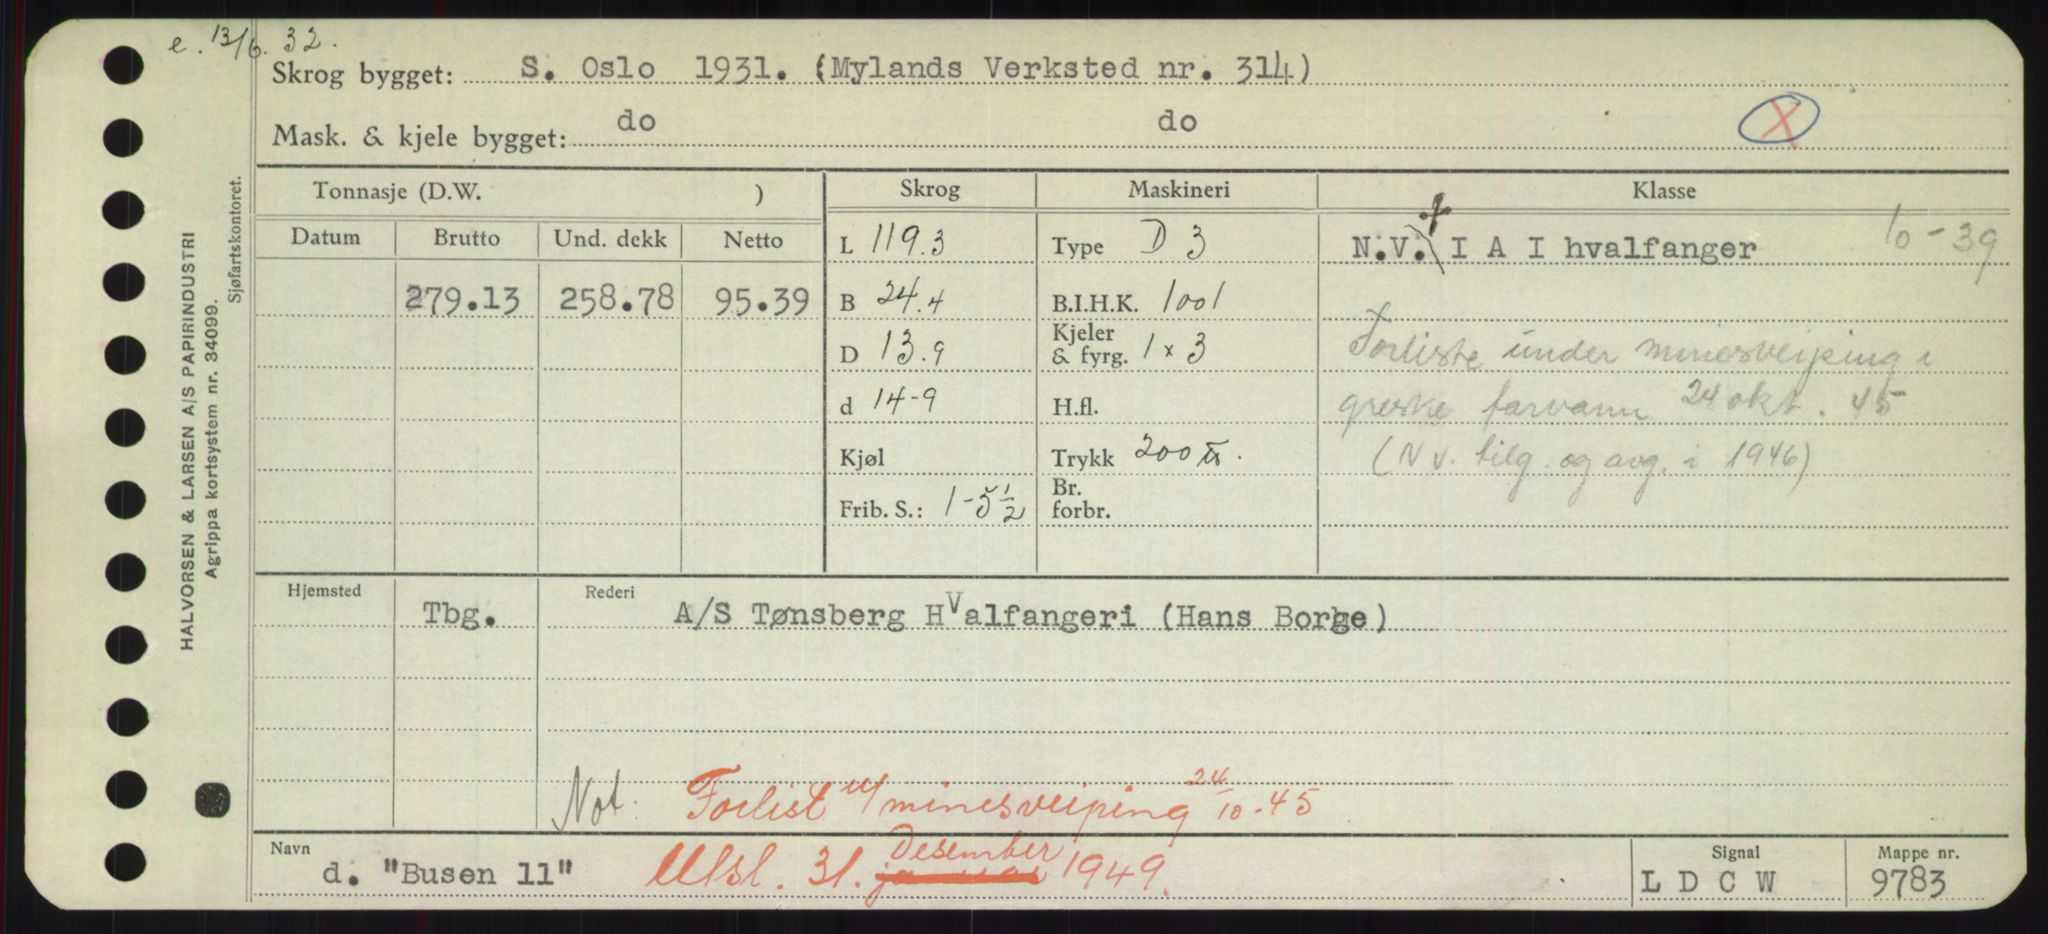 e. 13/6. 32.
Skrog bygget: S. Oslo 1931. (Mylands Verksted nr. 314)
Mask. & kjele bygget: do do
X
Tonnasje (D.W. )
Skrog
Maskineri
Klasse
Datum Brutto Und. dekk Netto
279.13 258.78 95.39
L 119.3
B 24.4
D 13.9
d 14-9
Kjøl
Frib. S.: 1-5½
Type D 3
B.I.H.K. 1001
Kjeler
& fyrg. 1 x 3
H.fl.
Trykk 200 lb.
Br.
forbr.
N.V. + I A I hvalfanger 10-39
Forliste under minesveiping i
greske farvann 24 okt. 45
(N v. tilg. og avg. i 1946)
Hjemsted
Rederi
Tbg. A/S Tønsberg Hvalfangeri (Hans Borge)
Not. Forlist u/minesveiping 24/10-45
Navn
d. "Busen 11"
Utsl. 31. januar Desember 1949.
Signal
L D C W
Mappe nr.
9783
HALVORSEN & LARSEN A/S PAPIRINDUSTRI
Agrippa kortsystem nr. 34099.
Sjøfartskontoret.